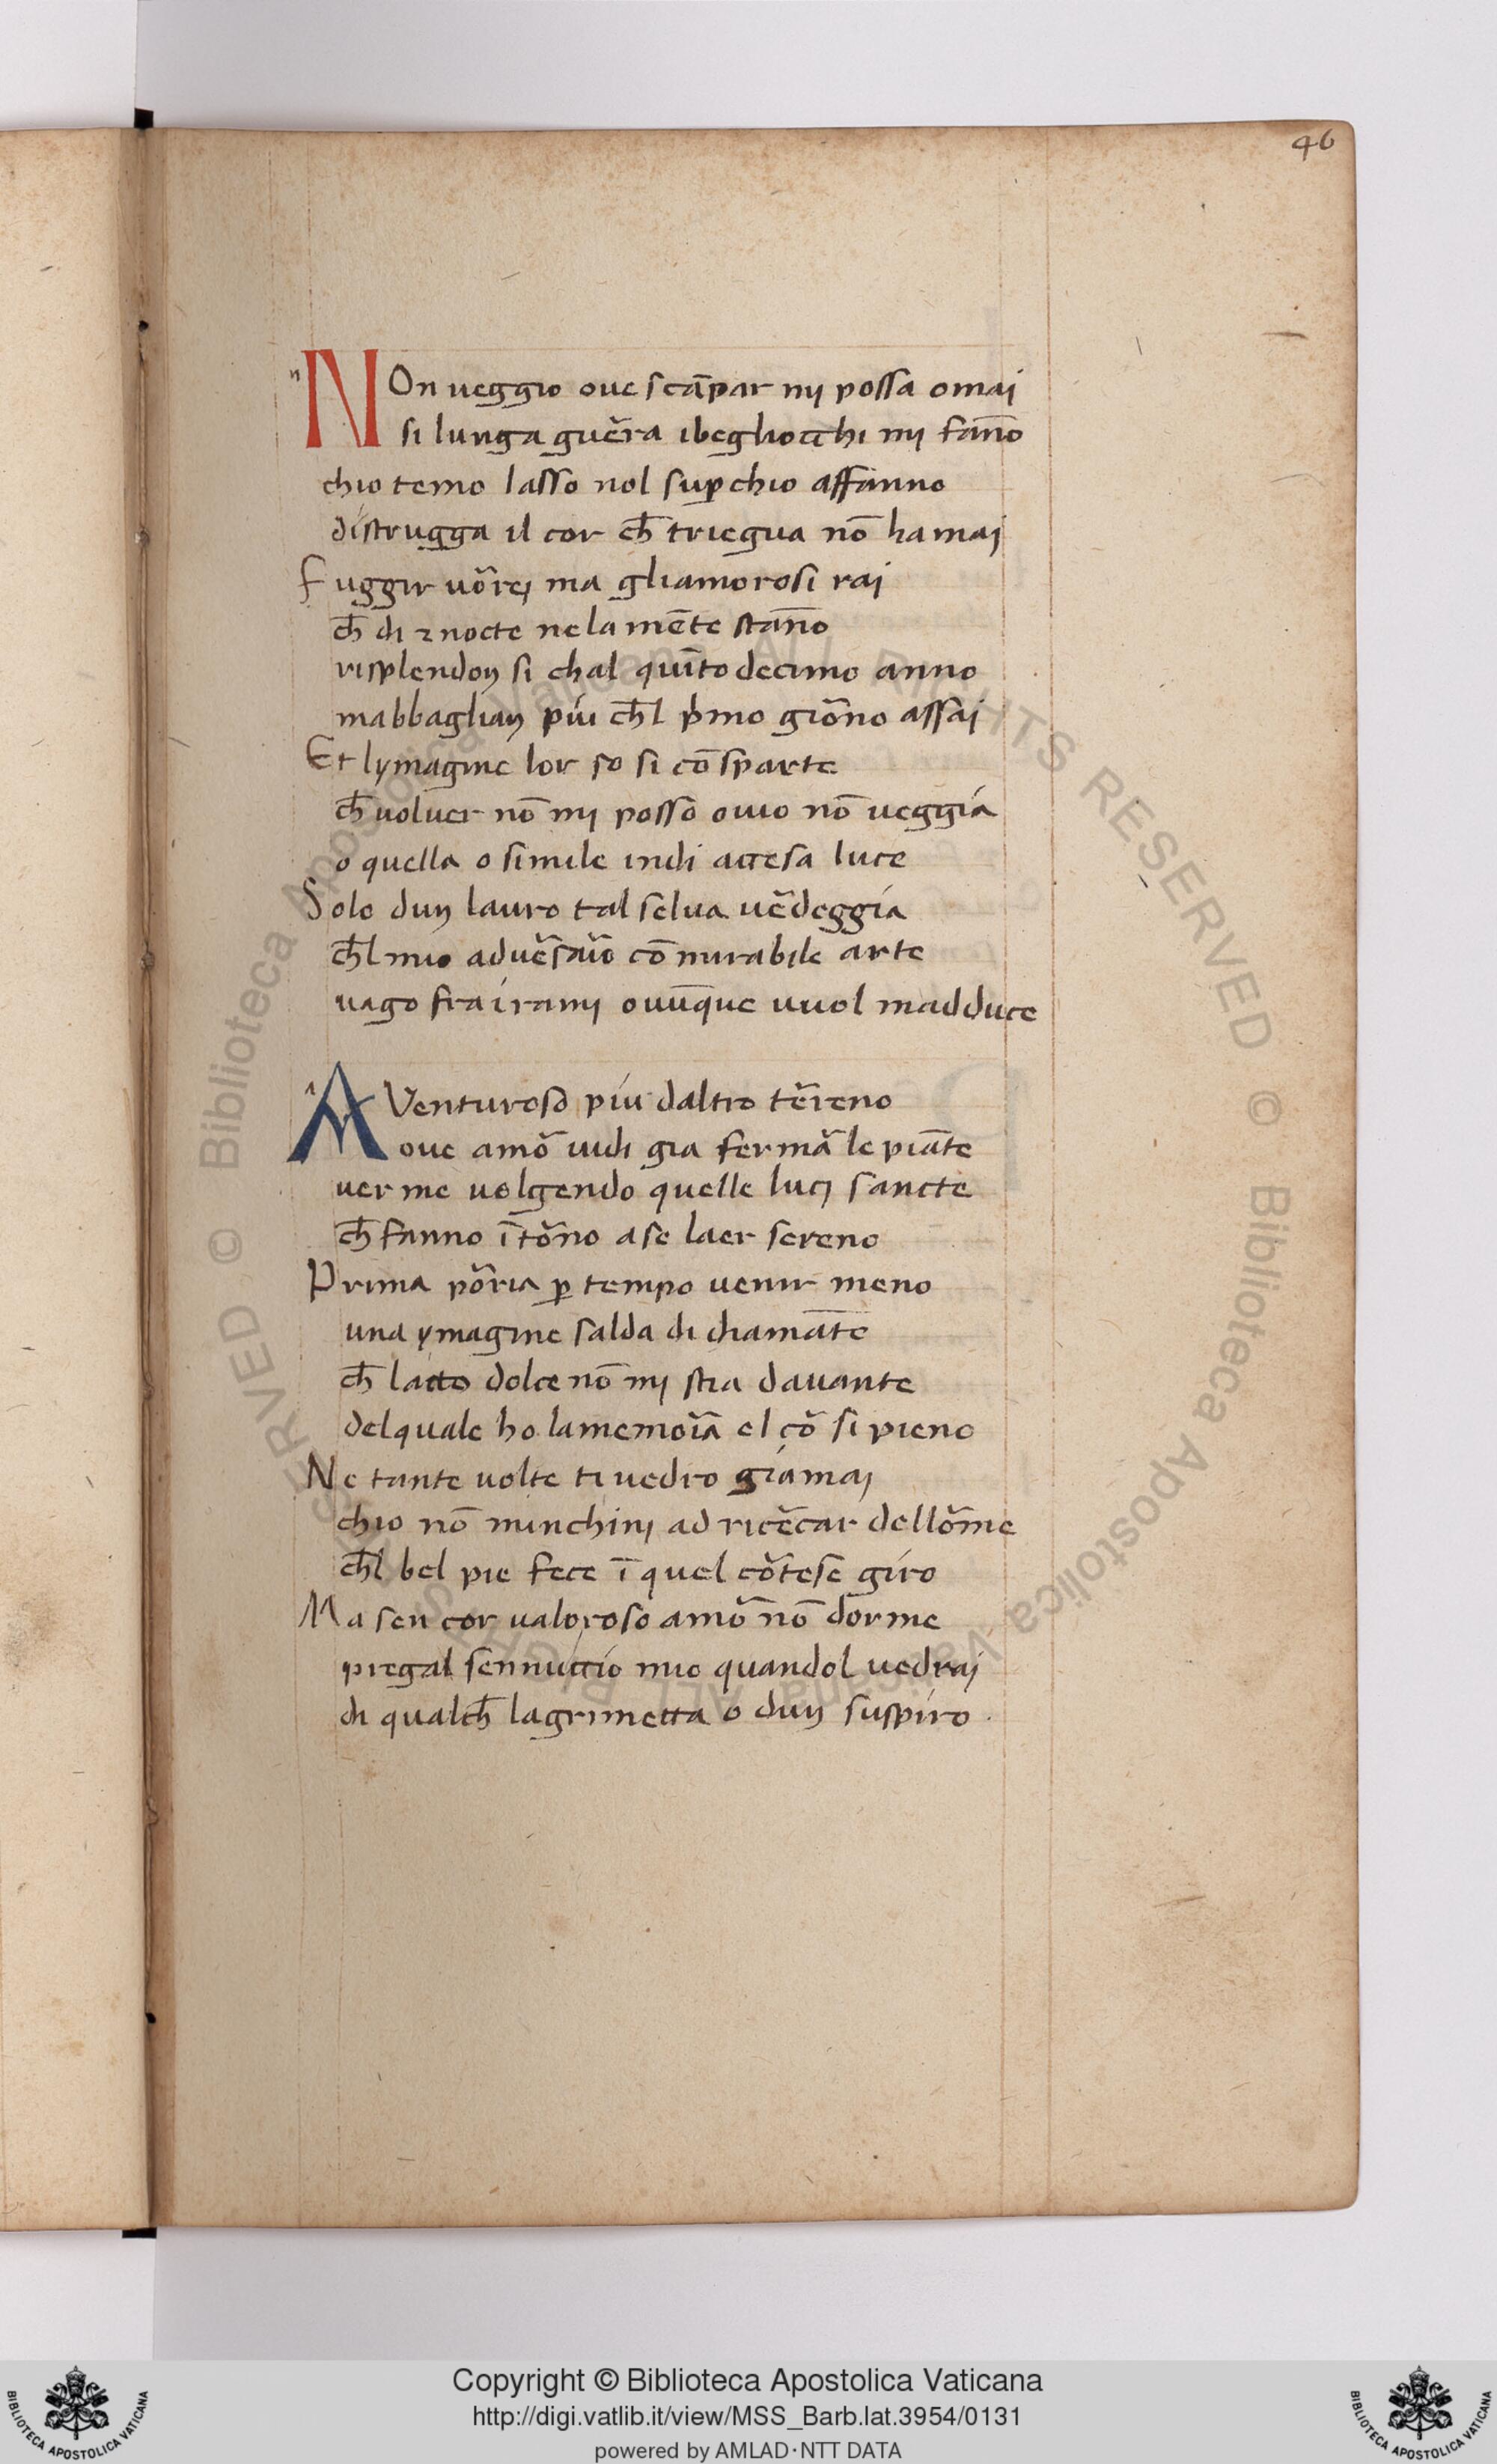 46
NOn ueggio oue scāpar mj possa omaj
si lunga guer̄ra ibegliocchi mj fan̄o
chio temo lasso nol sup̱chio affanno
distrugga il cor ch̄ triegua nō ha maj
Fuggir uor̄rej ma gliamorosi raj
ch̄ di ⁊ nocte ne la mēte stan̄o
risplendon si chal quīto decimo anno
mabbaglian píu ch̄l p̍mo gior̄no assaj
Et lymagine lor so si cō sparte
ch̄ uoluer nō mj posso ouio nō ueggía
o quella o simile indi accesa luce
Solo dun lauro tal selua uer̄deggía
ch̄l mio aduer̄sar̄io cō mirabile arte
uago fra i ramj ouūque uuol madduce
AVenturoso píu daltro ter̄reno
oue amor̄ uidi gia fermar̄ le piāte
uer me uolgendo quelle lucj sancte
ch̄ fanno ī tor̄no a se laer sereno
Prima por̄ria p̱ tempo uenir meno
una ymagine salda di diamāte
ch̄ lacto dolce nō mj stia dauante
del quale ho la memor̄ia el cor̄ si pieno
Ne tante uolte ti uedro gíamaj
chio nō minchinj ad ricer̄car dellor̄me
ch̄l bel pie fece ī quel cor̄tese gíro
Ma sen cor ualoroso amor̄ nō dorme
priegal sennuccío mio quandol uedraj
di qualch̄ lagrimetta o dun suspíro .
© Biblioteca Apostolica Vaticana ALL RIGHTS RESERVED © Biblioteca Apostolica Vaticana ALL RIGHTS RESERVED
Copyright © Biblioteca Apostolica Vaticana
http://digi.vatlib.it/view/MSS_Barb.lat.3954/0131
powered by AMLAD·NTT DATA
BIBLIOTECA APOSTOLICA VATICANA
BIBLIOTECA APOSTOLICA VATICANA